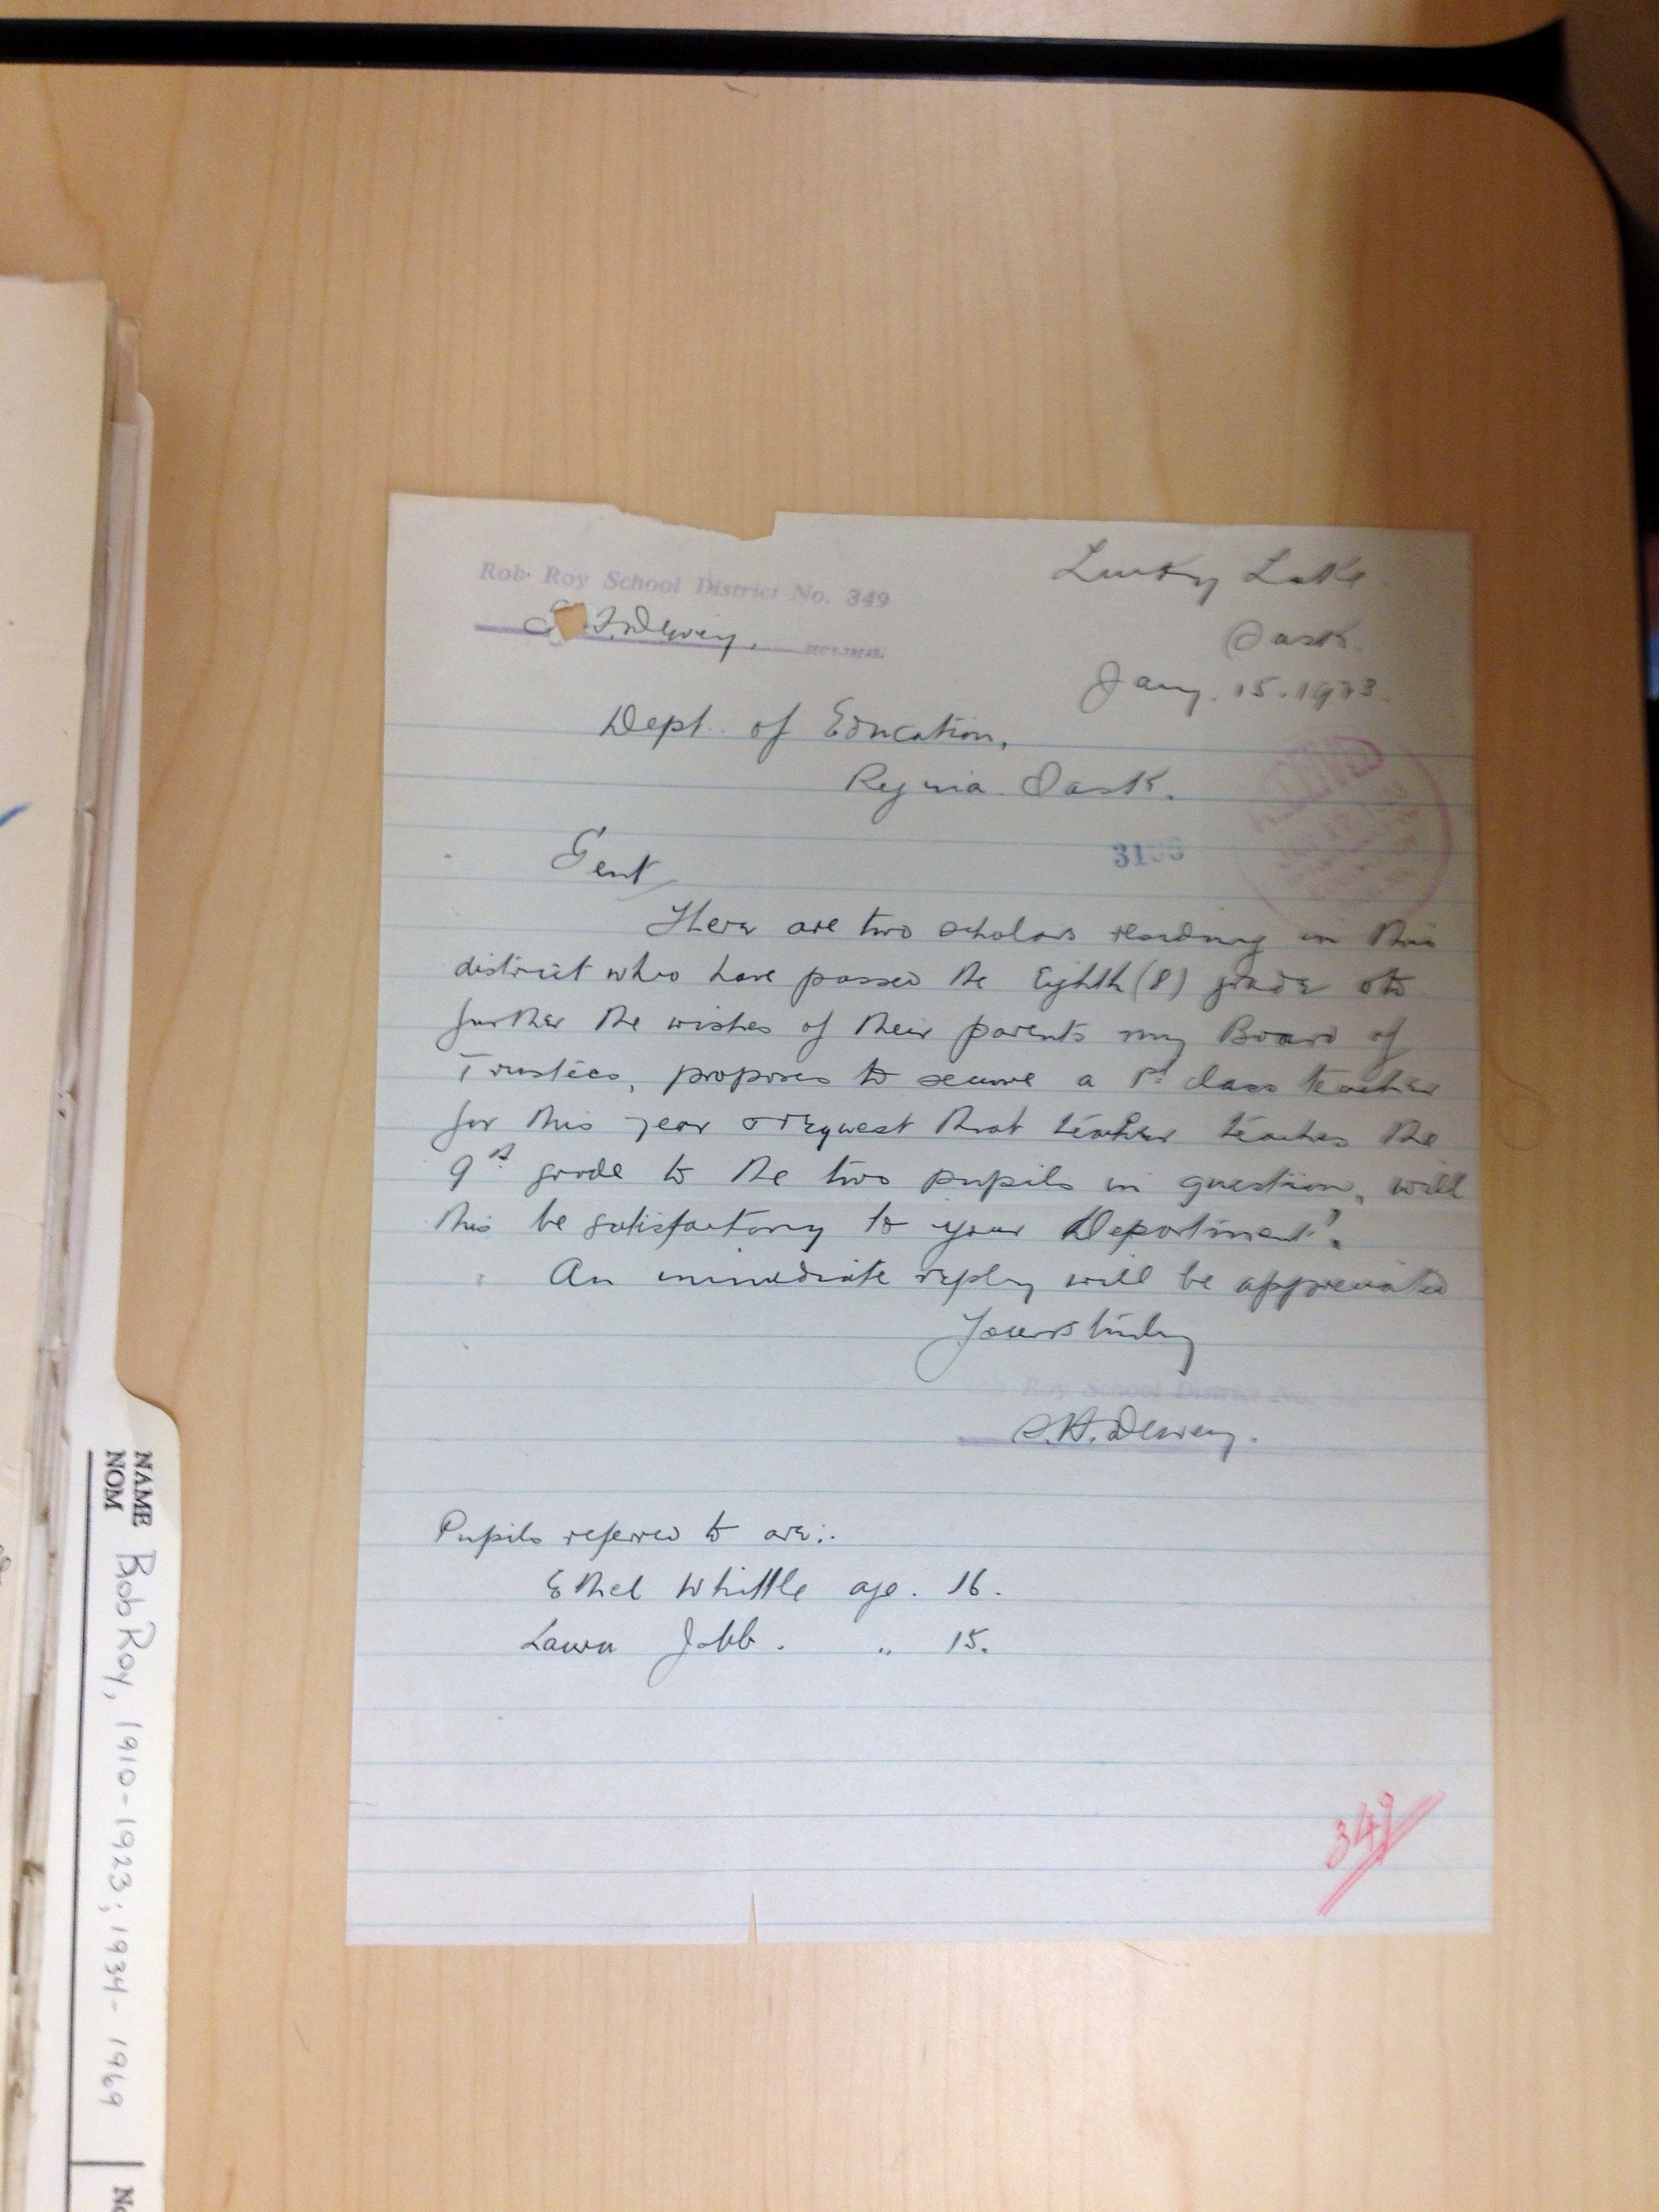 Rob Roy School District No. 349
Dewey,
SEC'Y-TREAS.
Lucky Lake
Sask.
Jany. 15. 1923.
Dept. of Education,
Regina Sask.
RECEIVED
31
Gent
There are two scholars residing in this
district who have passed the Eighth (8) grade & to
further the wishes of their parents my Board of
Trustees, proposes to secure a 1st class teacher
for this year & request that teacher teaches the
9th grade to the two pupils in question, will
this be satisfactory to your Department?
An immediate reply will be appreciated
Yours truly
Roy School District No.
S.H. Dewey.
Pupils referred to are:.
Ethel Whittle age. 16.
Laura Jobb. " 15.
349
NAME
NOM
Bob Roy, 1910-1923; 1934-1969